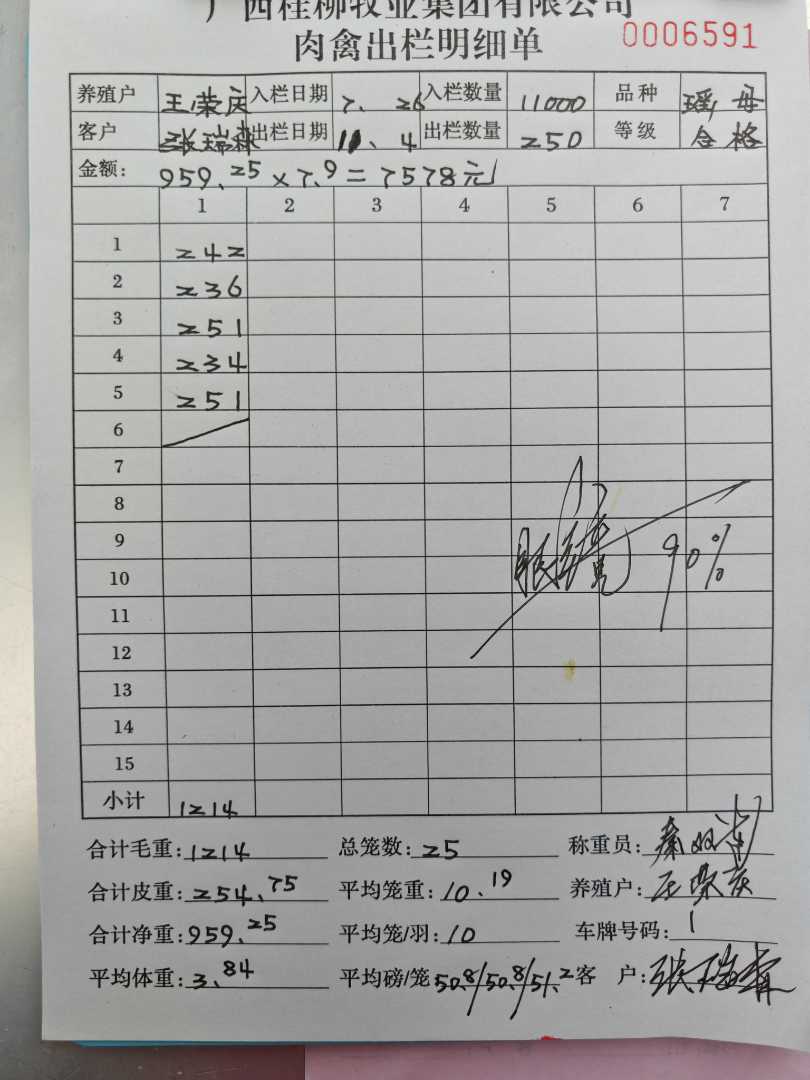 广西桂柳牧业集团有限公司
肉禽出栏明细单 0006591
养殖户 王荣庆 入栏日期 7.26 入栏数量 11000 品种 瑶母
客户 张瑞森 出栏日期 11.4 出栏数量 250 等级 合格
金额: 959.25×7.9=7578元
1 2 3 4 5 6 7
1 242
2 236
3 251
4 234
5 251
6
7
8
9
10
11
12
13
14
15
90%
小计 1214
合计毛重:1214 总笼数:25 称重员:秦
合计皮重:254.75 平均笼重:10.19 养殖户:王荣庆
合计净重:959.25 平均笼/羽:10 车牌号码:1
平均体重:3.84 平均磅/笼 50.8/50.8/51.2 客户:张瑞森